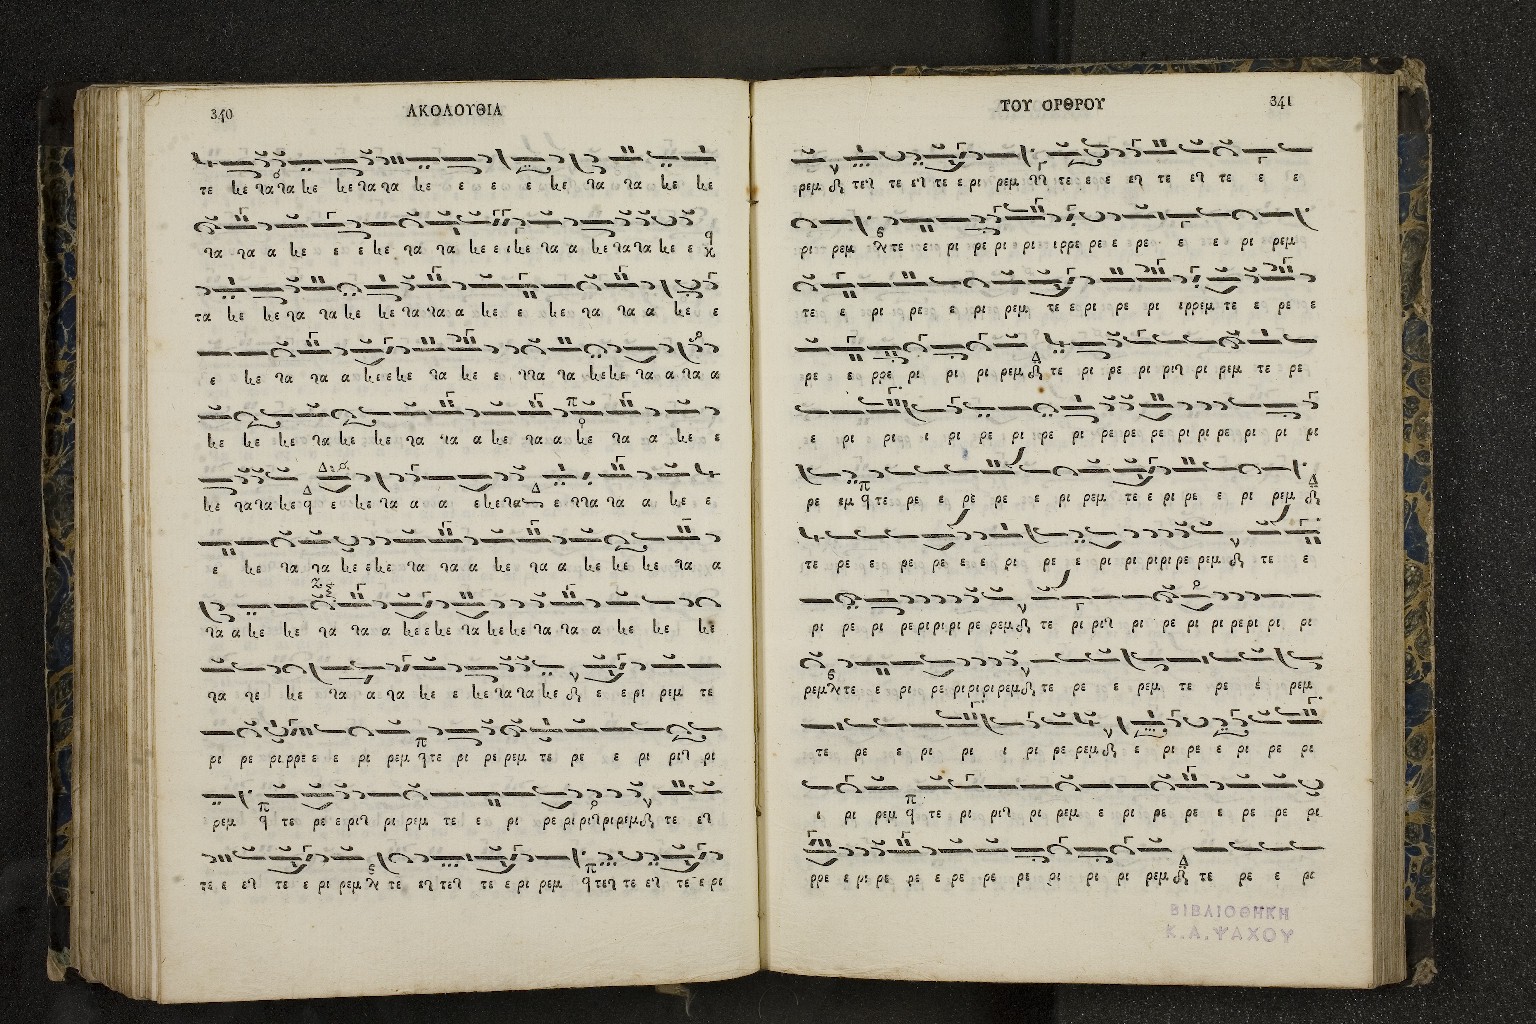 340
ΑΚΟΛΟΥΘΙΑ
τε κε γα γα κε κε γα γα κε ε ε ε κε γα γα κε κε
γα γα α κε ε ε κε γα γα κε ε ι κε γα α κε γα γα κε ε
τα κε κε γα γα κε κε γα γα α κε ε κε γα γα α κε ε
ε κε γα γα α κε ε κε γα κε ε γγα γα κε κε γα α γα α
κε κε κε γα κε κε γα γα α κε γα α κε γα α κε ε
κε γα γα κε ε κε γα α α ε κε γα ε γγα γα α κε ε
ε κε γα γα κε ε κε γα γα α κε γα α κε κε κε γα α
γα α κε κε γα γα α κε ε κε γα κε κε γα γα α κε κε κε
γα γε κε γα α γα κε ε κε γα γα κε ε ε ρι ρεμ τε
ρι ρε ρι ρρε ε ε ρι ρεμ τε ρι ρε ρεμ τε ρε ε ρι ριγ ρι
ρεμ τε ρε ε ριγ ρι ρεμ τε ε ρι ρε ρι ριγ ρι ρεμ τε εγ
τε ε εγ τε ε ρι ρεμ τε εγ τεγ τε ε ρι ρεμ τεγ τε εγ τε ε ρι
ΤΟΥ ΟΡΘΡΟΥ
341
ρεμ τεγ τε εγ τε ε ρι ρεμ γγ τε ε ε εγ τε εγ τε ε ε
ρι ρεμ τε ε ρι ρε ρι ρι ι ρρε ρε ε ρε ε ε ρι ρεμ
τε ε ρι ρε ε ρι ρεμ τε ε ρι ρε ρι ιρρεμ τε ε ρε ε
ρε ε ρρε ρι ρι ρι ρεμ τε ρι ρε ρι ριγ ρι ρεμ τε ρε
ε ρι ρι ι ρι ρε ρι ρε ρι ρε ρε ρε ρι ρι ρε ρι ρι ρι
ρε εμ τε ρε ε ρε ρε ε ρι ρεμ τε ε ρι ρε ε ρι ρεμ
τε ρε ε ρε ρε ε ε ρι ρε ε ρι ρε ρι ρι ρι ρε ρεμ τε ε
ρι ρε ρι ρε ρι ρι ρι ρι ρε ρεμ τε ρι ριγ ρι ρε ρι ρι ρε ρι ρι ρι
ρεμ τε ε ρι ρε ρι ρι ρι ρι ρεμ τε ρε ε ρεμ τε ρε ε ρεμ
τε ρε ε ρι ρι ι ρι ρε ρεμ ε ρι ρε ε ρι ρε ρι
ι ρι ρεμ τε ρι ριγ ρι ρεμ ε ρι ρε ρε ε ρε ρε ρι
ρρε ε ρι ρε ρε ε ρε ρε ρε ρι ρι ρι ρεμ τε ρε ε ρι
ΒΙΒΛΙΟΘΗΚΗ
Κ. Α. ΨΑΧΟΥ